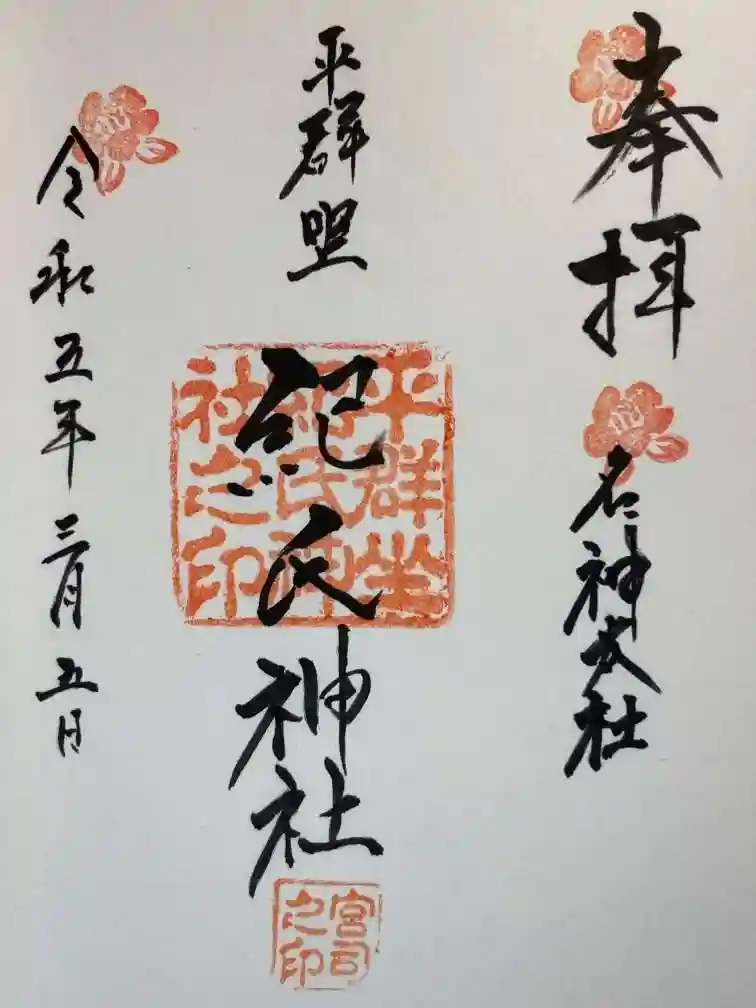 奉拝
名神大社
平群坐
紀氏神社
平群坐
紀氏神
社之印
宮司
之印
令和五年三月五日